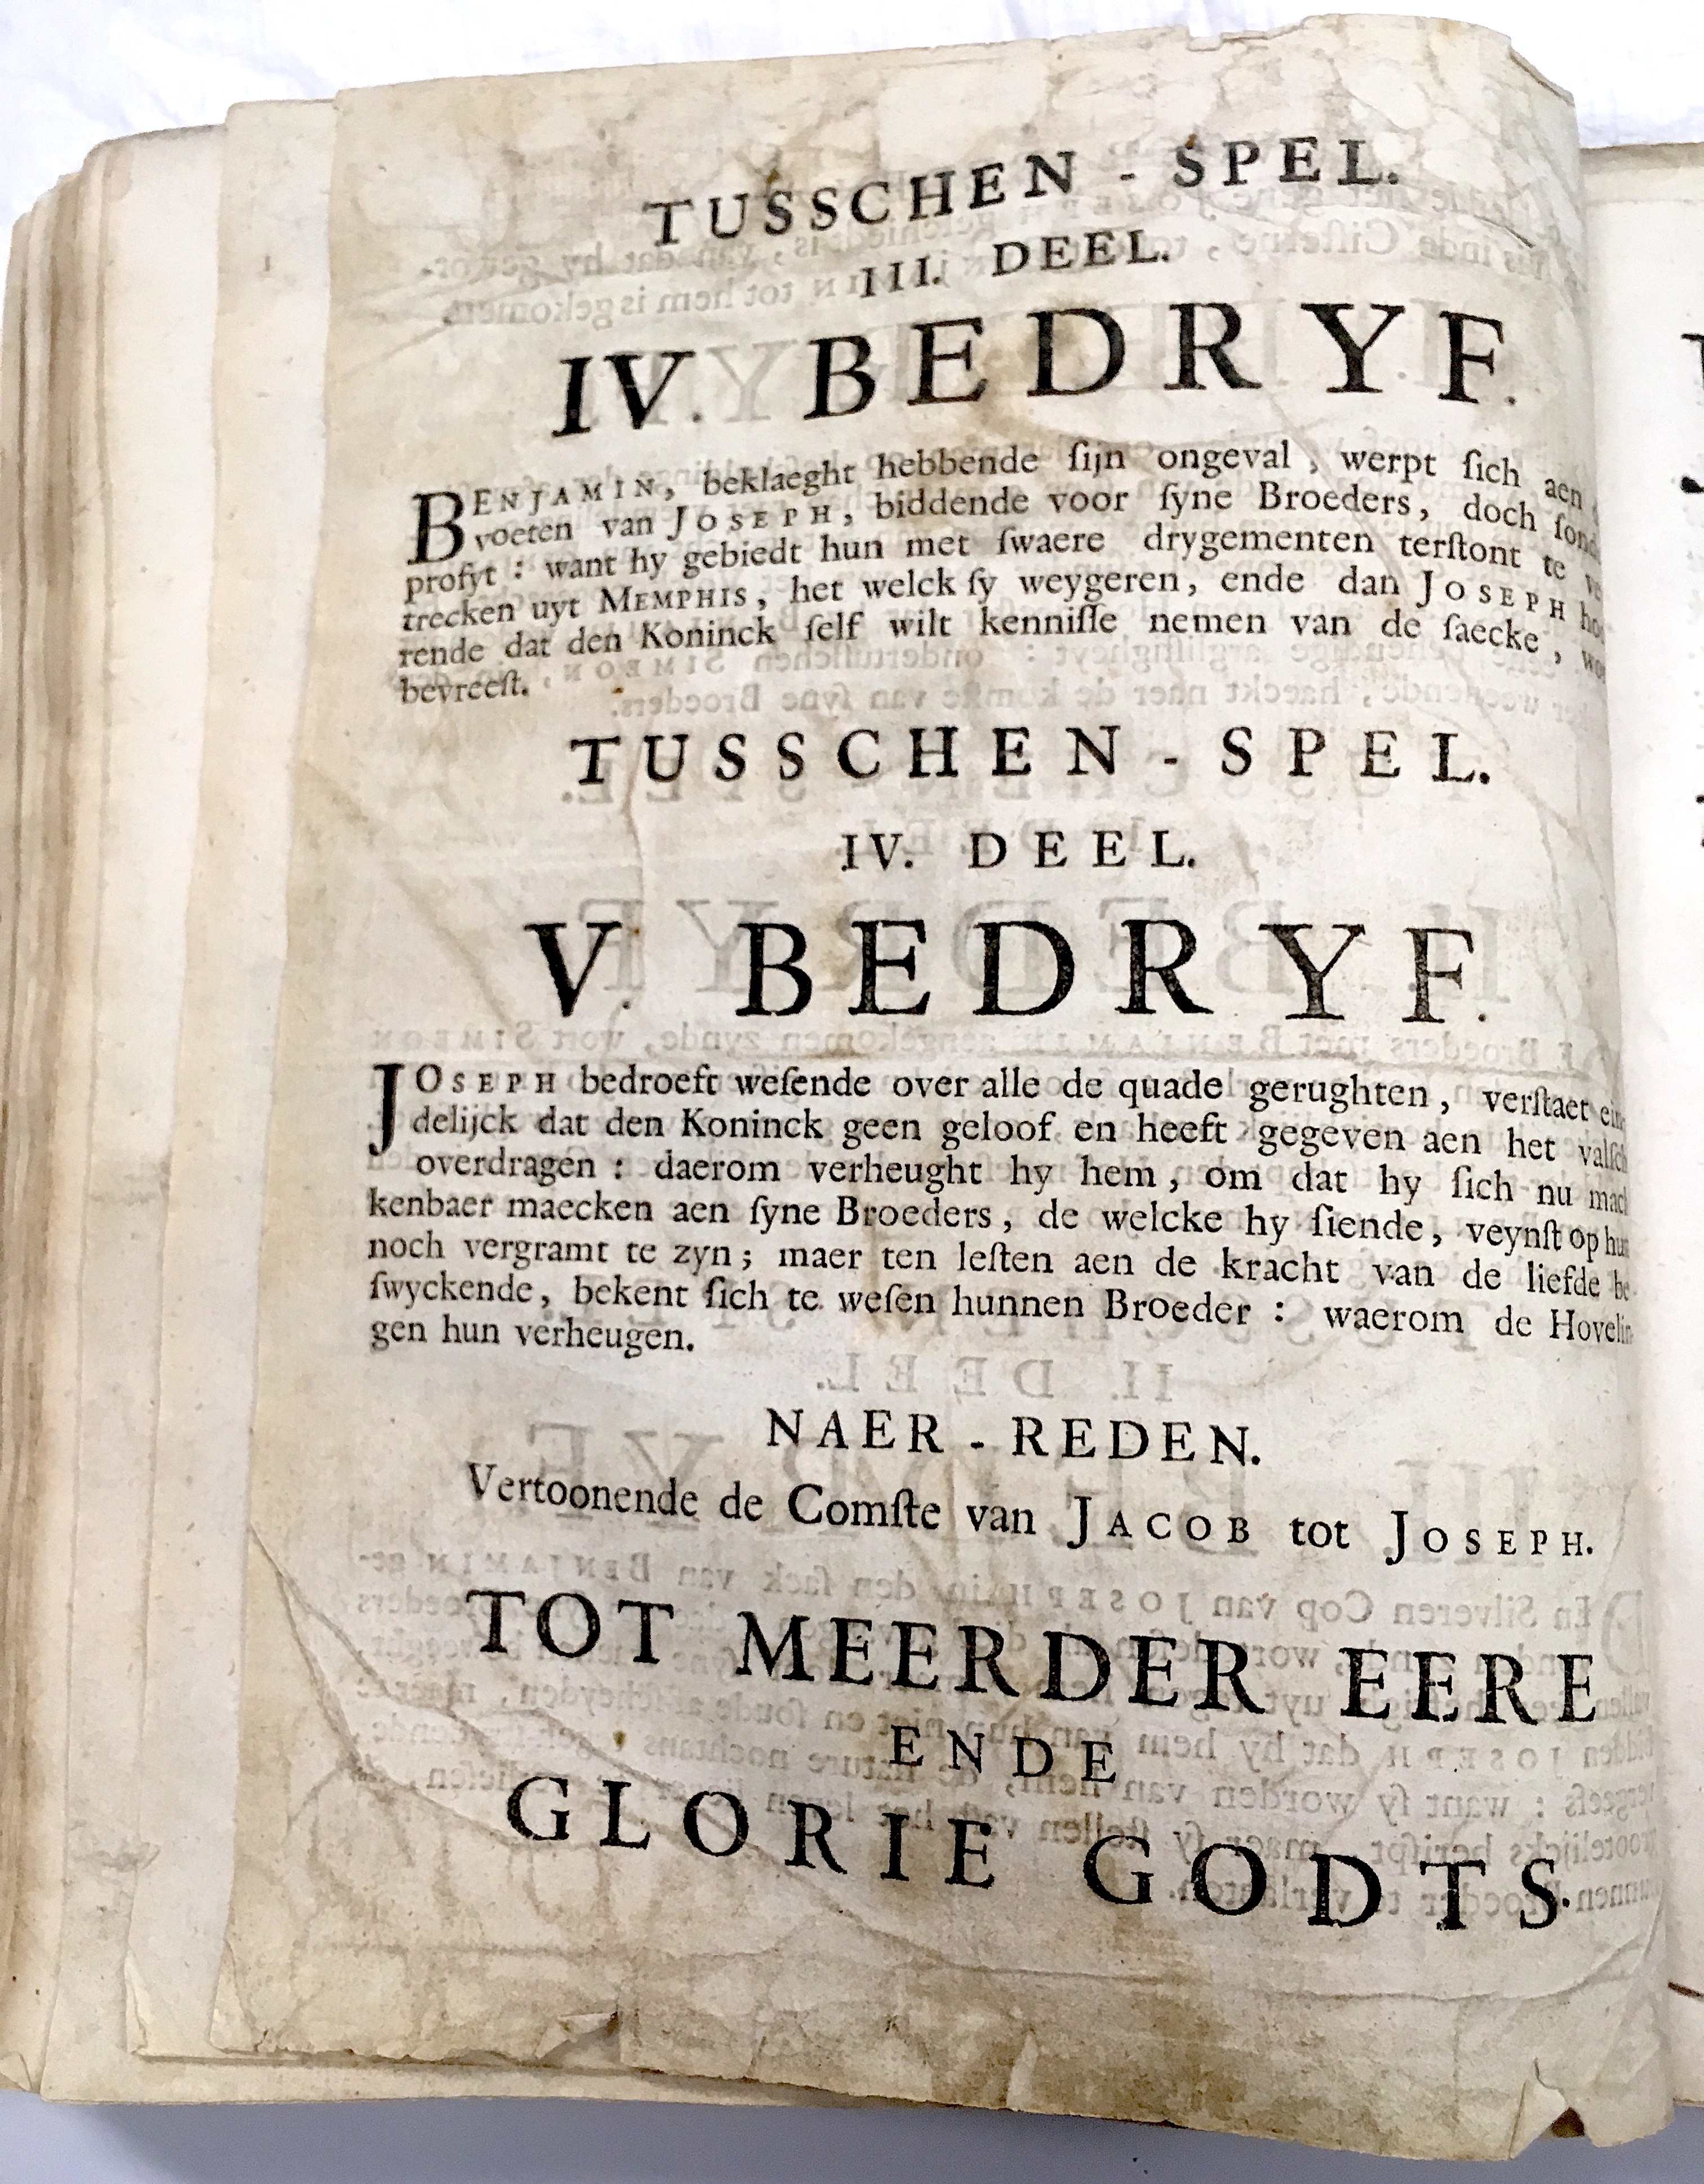 TUSSCHEN - SPEL.
III. DEEL.
IV. BEDRYF.
BENJAMIN, beklaeght hebbende ſijn ongeval, werpt ſich aen
voeten van JOSEPH, biddende voor ſyne Broeders, doch ſond
profyt : want hy gebiedt hun met ſwaere drygementen terſtont te ve
trecken uyt MEMPHIS, het welck ſy weygeren, ende dan JOSEPH hoo
rende dat den Koninck ſelf wilt kenniſſe nemen van de ſaecke, wor
bevreeſt.
TUSSCHEN - SPEL.
IV. DEEL.
V. BEDRYF.
JOSEPH bedroeft weſende over alle de quade gerughten, verſtaet ein
delijck dat den Koninck geen geloof en heeft gegeven aen het valſch
overdragen : daerom verheught hy hem, om dat hy ſich nu mach
kenbaer maecken aen ſyne Broeders, de welcke hy ſiende, veynſt op hun
noch vergramt te zyn; maer ten leſten aen de kracht van de liefde be-
ſwyckende, bekent ſich te weſen hunnen Broeder : waerom de Hovelin
gen hun verheugen.
NAER - REDEN.
Vertoonende de Comſte van JACOB tot JOSEPH.
TOT MEERDER EERE
ENDE
GLORIE GODTS.